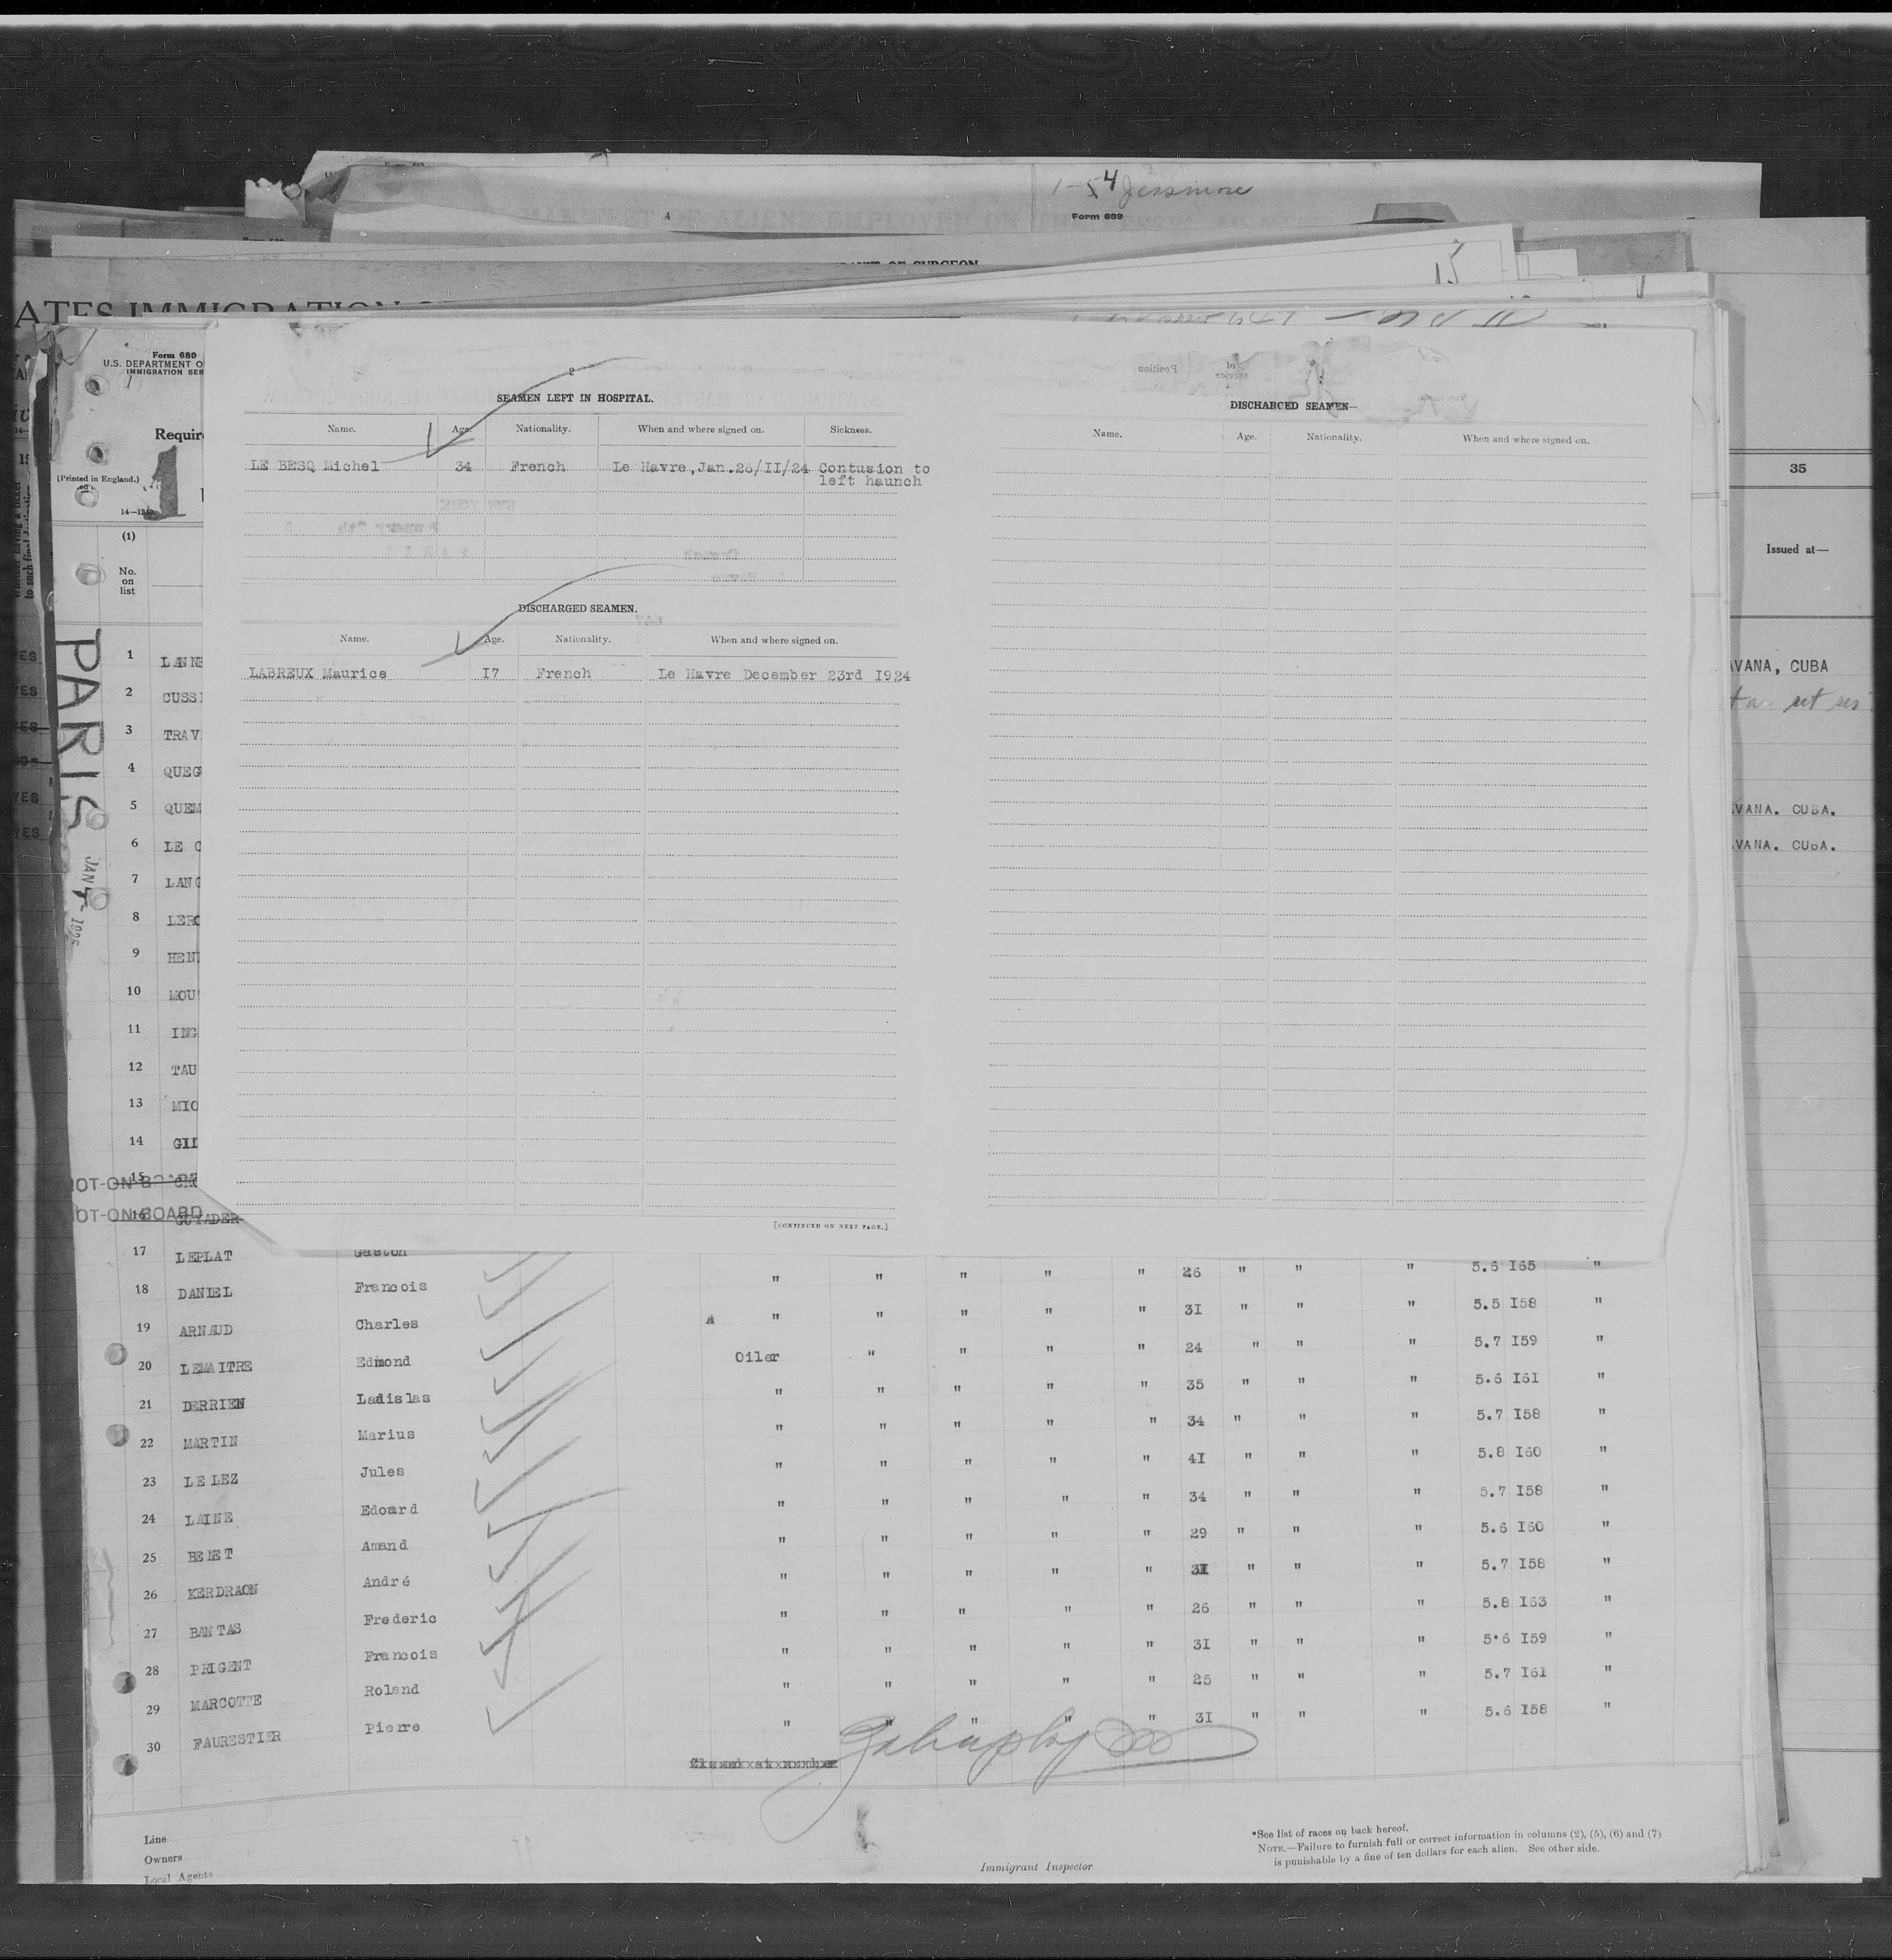 4
1-54 Jessmore
Form 689
OF SURGEON
15
ATES IMMIGRATION
Form 680
U.S. DEPARTMENT O
IMMIGRATION SER
Requir
(Printed in England.)
(1)
No.
on
list
PARIS
JAN
1925
2
SEAMEN LEFT IN HOSPITAL.
Name. Age. Nationality. When and where signed on. Sickness.
LE BESQ Michel 34 French Le Havre,Jan.26/II/24 Contusion to
left haunch
DISCHARGED SEAMEN.
Name. Age. Nationality. When and where signed on.
LABREUX Maurice I7 French Le Havre December 23rd I924
[CONTINUED ON NEXT PAGE.]
DISCHARGED SEAMEN—
Name. Age. Nationality. When and where signed on.
35
Issued at—
AVANA, CUBA
AVANA. CUBA.
AVANA. CUBA.
YES
YES
1 LANNE
2 CUSSI
3 TRAV
4 QUEG
5 QUEM
6 LE C
7 LANG
8 LERO
9 HEN
10 MOU
11 ING
12 TAU
13 MIC
14 GIL
15
NOT-ON BOARD
16 GUYADER
NOT-ON-BOARD
17 LEPLAT Gaston " " " " " 26 " " " 5.6 I65 "
18 DANIEL Francois " " " " " 3I " " " 5.5 I58 "
19 ARNAUD Charles
20 LEMAITRE Edmond Oiler " " " " 24 " " " 5.7 I59 "
21 DERRIEN Ladislas " " " " " 35 " " " 5.6 I61 "
22 MARTIN Marius " " " " " 34 " " " 5.7 I58 "
23 LE LEZ Jules " " " " " 4I " " " 5.8 I60 "
24 LAINE Edouard " " " " " 34 " " " 5.7 I58 "
25 BENET Amand " " " " " 29 " " " 5.6 I60 "
26 KERDRAON André " " " " " 3I " " " 5.7 I58 "
27 BANTAS Frederic " " " " " 26 " " " 5.8 I63 "
28 PRIGENT Francois " " " " " 3I " " " 5.6 I59 "
29 MARCOTTE Roland " " " " " 25 " " " 5.7 I61 "
30 FAURESTIER Pierre " " " " " 3I " " " 5.6 I58 "
Line
Owners
Local Agents
Immigrant Inspector
*See list of races on back hereof.
NOTE.—Failure to furnish full or correct information in columns (2), (5), (6) and (7)
is punishable by a fine of ten dollars for each alien. See other side.